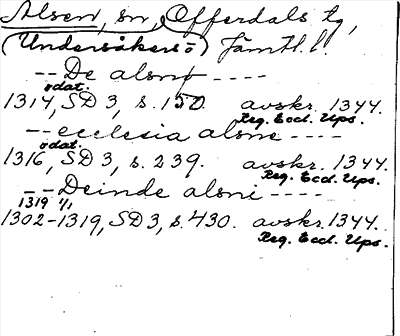 Alsen, sn, Offerdals tg,
(Undersåkers ö) Jämtl. l.
-- De alsnø ----
odat.
1314, SD 3, s. 150. avskr. 1344.
Reg. Eccl. Ups.
-- ecclesia alsne ----
odat.
1316, SD 3, s. 239. avskr. 1344.
Reg. Eccl. Ups.
-- Deinde alsni ----
1319 1/1
1302-1319, SD 3, s. 430. avskr. 1344.
Reg. Eccl. Ups.